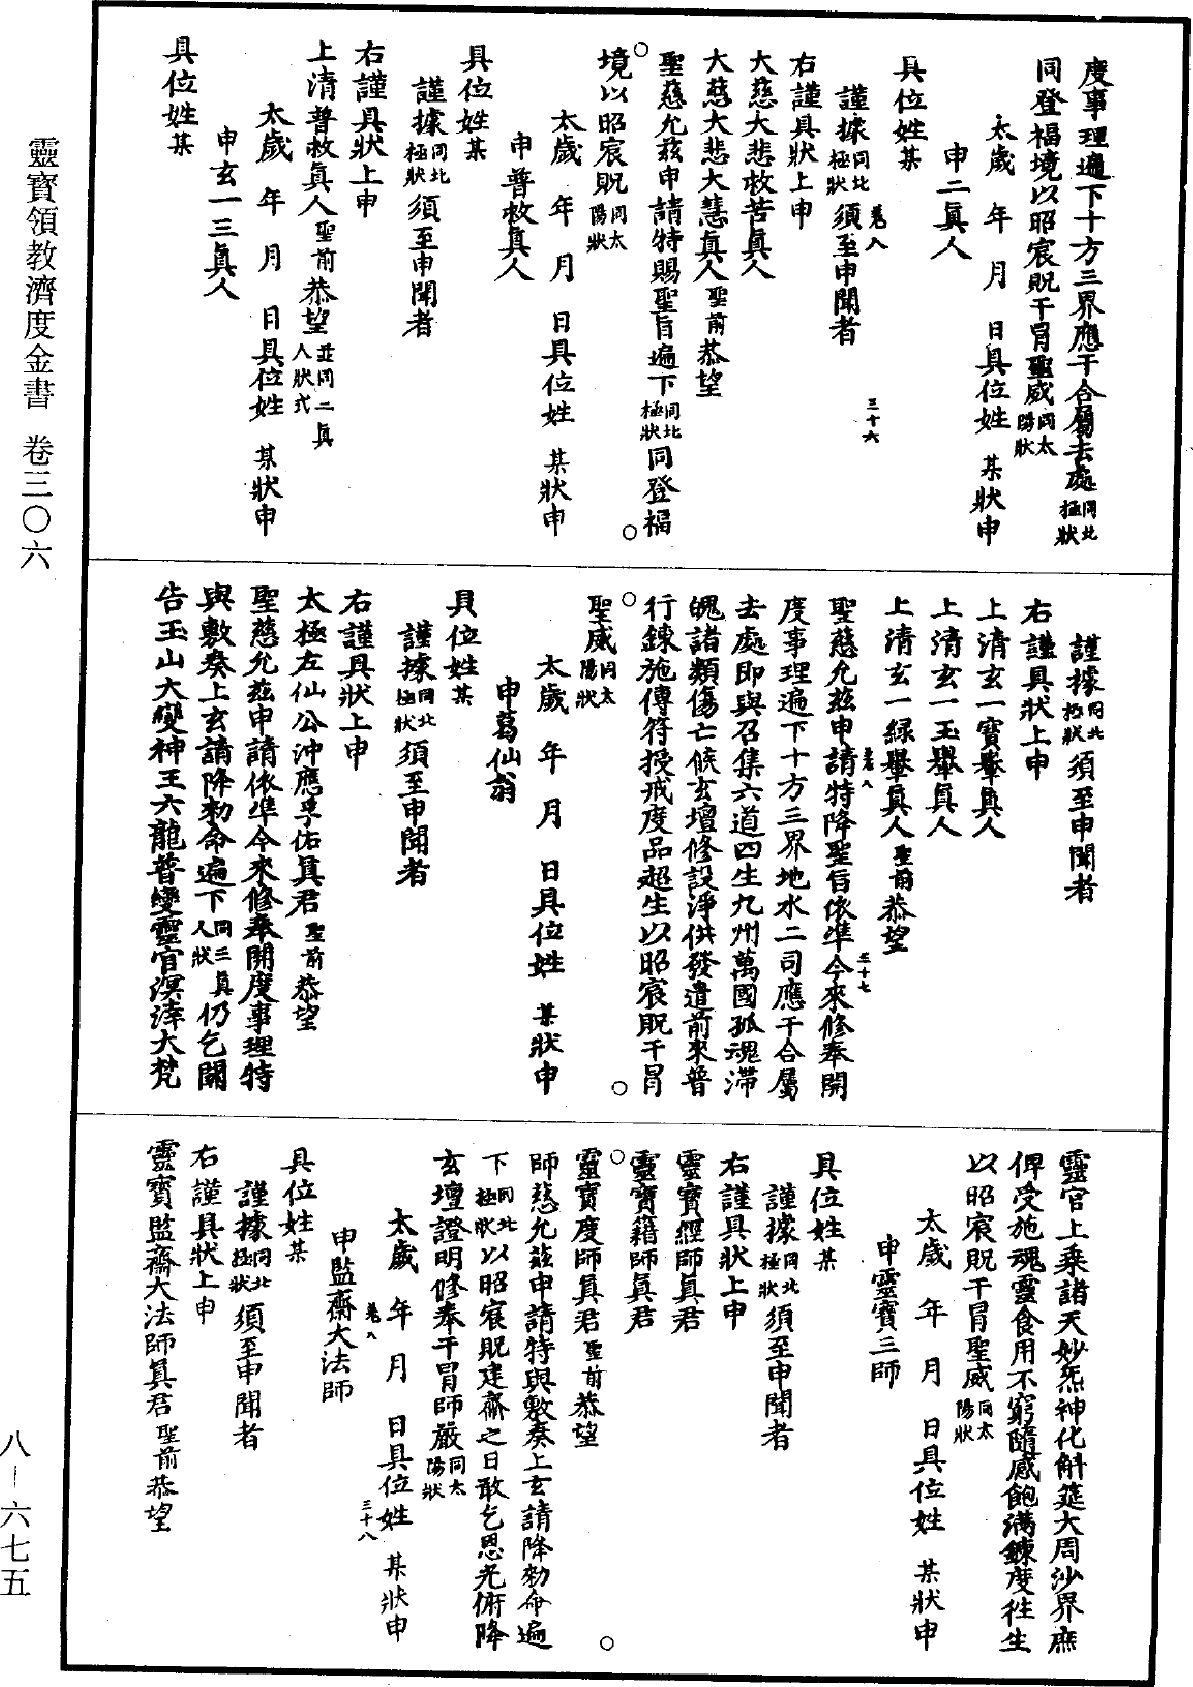 度事理遍下十方三界應干合屬去處同北極狀
同登福境以昭宸貺干冒聖威同太陽狀
太歲　年　月　日具位姓　某狀申
申二真人
具位姓某
謹據同北極狀須至申聞者
卷八　三十六
右謹具狀上申
大慈大悲救苦真人
大慈大悲大慧真人聖前恭望
聖慈允茲申請特賜聖旨遍下同北極狀同登福
境以昭宸貺同太陽狀
太歲　年　月　日具位姓　某狀申
申普救真人
具位姓某
謹據同北極狀須至申聞者
右謹具狀上申
上清普救真人聖前恭望並同二真人狀式
太歲　年　月　日具位姓　某狀申
申玄一三真人
具位姓某
謹據同北極狀須至申聞者
右謹具狀上申
上清玄一寶轝真人
上清玄一玉轝真人
上清玄一綠轝真人聖前恭望
卷八　三十七
聖慈允茲申請特降聖旨依準今來修奉開
度事理遍下十方三界地水二司應干合屬
去處即與召集六道四生九州萬國孤魂滯
魄諸類傷亡候玄壇修設淨供發遣前來普
行鍊施傳符授戒度品超生以昭宸貺干冒
聖威同太陽狀
太歲　年　月　日具位姓　某狀申
申葛仙翁
具位姓某
謹據同北極狀須至申聞者
右謹具狀上申
太極左仙公沖應孚佑真君聖前恭望
聖慈允茲申請依準今來修奉開度事理特
與敷奏上玄請降勑命遍下同三真人狀仍乞關
告玉山大變神王六龍普變靈官溟涬大梵
靈官上乘諸天妙炁神化斛筵大周沙界庶
俾受施魂靈食用不窮隨感飽滿鍊度徃生
以昭宸貺干冒聖威同太陽狀
太歲　年　月　日具位姓　某狀申
申靈寶三師
具位姓某
謹據同北極狀須至申聞者
右謹具狀上申
靈寶經師真君
靈寶籍師真君
靈寶度師真君聖前恭望
師慈允茲申請特與敷奏上玄請降勑命遍
下同北極狀以昭宸貺建齋之日敢乞恩光俯降
玄壇證明修奉干冒師嚴同太陽狀
太歲　年　月　日具位姓　某狀申
卷八　三十八
申監齋大法師
具位姓某
謹據同北極狀須至申聞者
右謹具狀上申
靈寶監齋大法師真君聖前恭望
靈寶領教濟度金書　卷三〇六
八-六七五